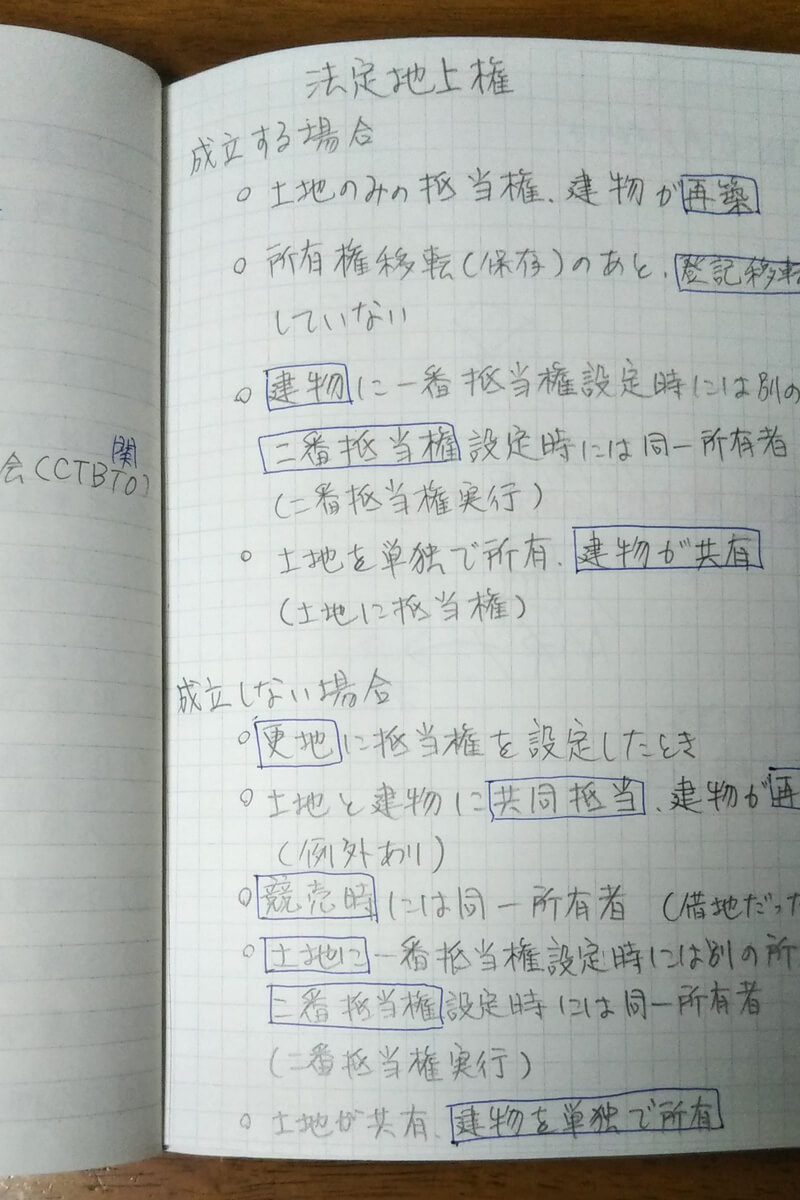 関
会(CCTBTO)
法定地上権
成立する場合
○ 土地のみの抵当権、建物が再築
○ 所有権移転(保存)のあと、登記移転
していない
○ 建物に一番抵当権設定時には別の
二番抵当権設定時には同一所有者
(二番抵当権実行)
○ 土地を単独で所有、建物が共有
(土地に抵当権)
成立しない場合
○ 更地に抵当権を設定したとき
○ 土地と建物に共同抵当、建物が再
(例外あり)
○ 競売時には同一所有者 (借地だった
○ 土地に一番抵当権設定時には別の所
二番抵当権設定時には同一所有者
(二番抵当権実行)
○ 土地が共有、建物を単独で所有